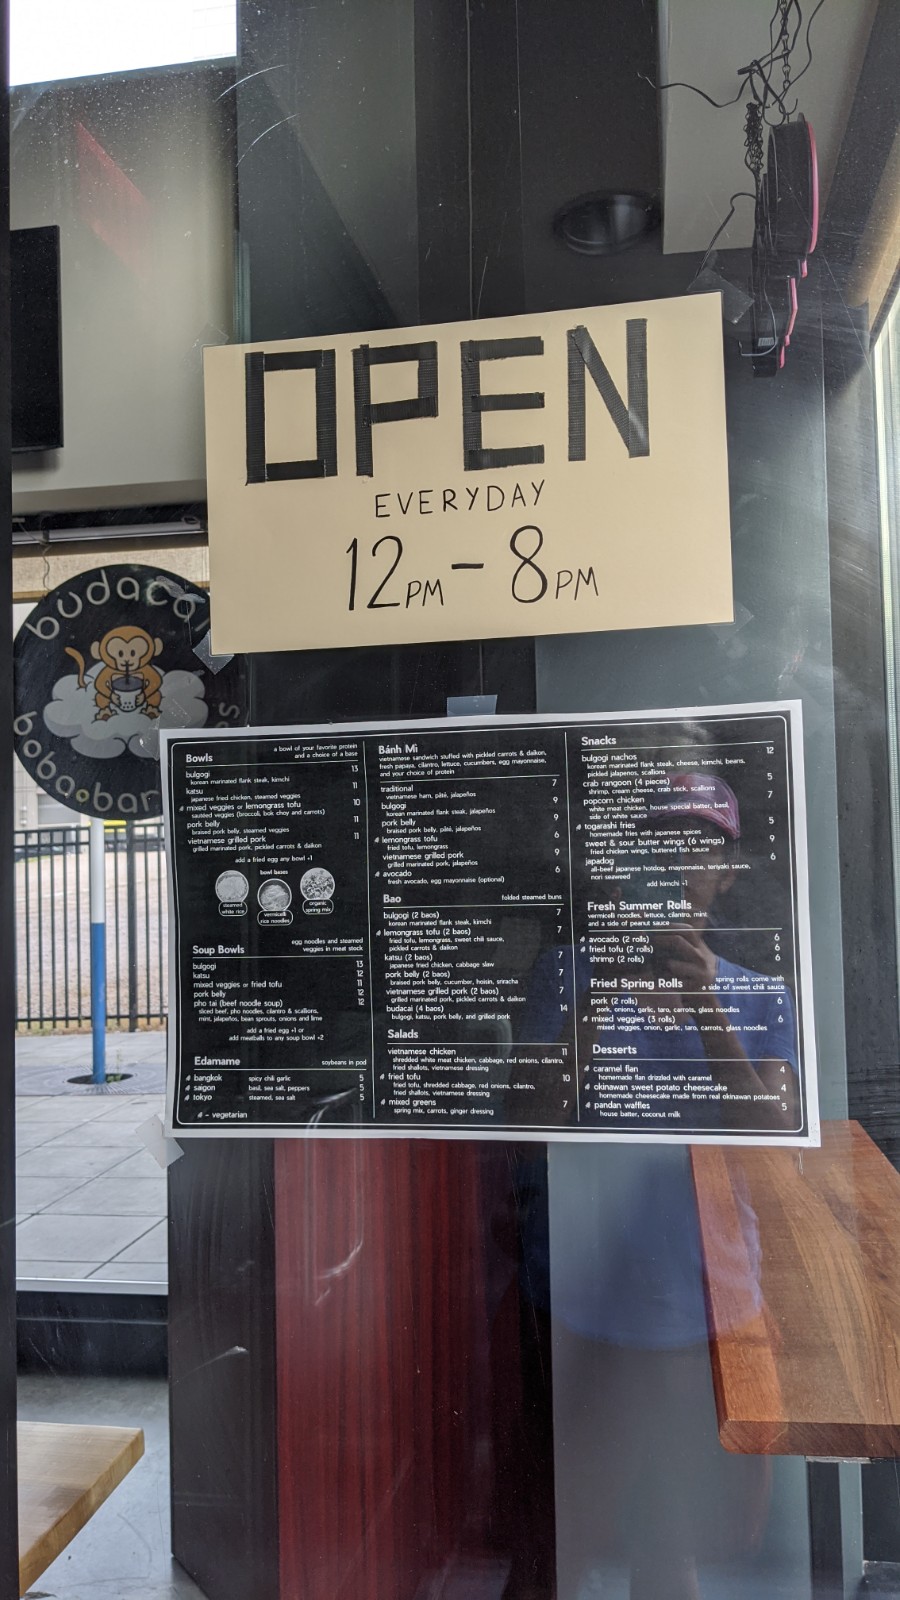 OPEN
EVERYDAY
12PM - 8PM
budacai
boba.bar
Bowls
a bowl of your favorite protein
and a choice of a base
bulgogi 13
korean marinated flank steak, kimchi
katsu 11
japanese fried chicken, steamed veggies
mixed veggies or lemongrass tofu 10
sautéed veggies (broccoli, bok choy and carrots)
pork belly 11
braised pork belly, steamed veggies
vietnamese grilled pork 11
grilled marinated pork, pickled carrots & daikon
add a fried egg any bowl +1
bowl bases
steamed
white rice
vermicelli
rice noodles
organic
spring mix
Soup Bowls
egg noodles and steamed
veggies in meat stock
bulgogi 13
katsu 12
mixed veggies or fried tofu 11
pork belly 12
pho tai (beef noodle soup) 12
sliced beef, pho noodles, cilantro & scallions,
mint, jalapeños, bean sprouts, onions and lime
add a fried egg +1 or
add meatballs to any soup bowl +2
Edamame soybeans in pod
bangkok spicy chili garlic 5
saigon basil, sea salt, peppers 5
tokyo steamed, sea salt 5
- vegetarian
Bánh Mì
vietnamese sandwich stuffed with pickled carrots & daikon,
fresh papaya, cilantro, lettuce, cucumbers, egg mayonnaise,
and your choice of protein
traditional 7
vietnamese ham, pâté, jalapeños
bulgogi 9
korean marinated flank steak, jalapeños
pork belly 9
braised pork belly, pâté, jalapeños
lemongrass tofu 6
fried tofu, lemongrass
vietnamese grilled pork 9
grilled marinated pork, jalapeños
avocado 6
fresh avocado, egg mayonnaise (optional)
Bao folded steamed buns
bulgogi (2 baos) 7
korean marinated flank steak, kimchi
lemongrass tofu (2 baos) 7
fried tofu, lemongrass, sweet chili sauce,
pickled carrots & daikon
katsu (2 baos) 7
japanese fried chicken, cabbage slaw
pork belly (2 baos) 7
braised pork belly, cucumber, hoisin, sriracha
vietnamese grilled pork (2 baos) 7
grilled marinated pork, pickled carrots & daikon
budacai (4 baos) 14
bulgogi, katsu, pork belly, and grilled pork
Salads
vietnamese chicken 11
shredded white meat chicken, cabbage, red onions, cilantro,
fried shallots, vietnamese dressing
fried tofu 10
fried tofu, shredded cabbage, red onions, cilantro,
fried shallots, vietnamese dressing
mixed greens 7
spring mix, carrots, ginger dressing
Snacks
bulgogi nachos 12
korean marinated flank steak, cheese, kimchi, beans,
pickled jalapenos, scallions
crab rangoon (4 pieces) 5
shrimp, cream cheese, crab stick, scallions
popcorn chicken 7
white meat chicken, house special batter, basil,
side of white sauce
togarashi fries 5
homemade fries with japanese spices
sweet & sour butter wings (6 wings) 9
fried chicken wings, buttered fish sauce
japadog 6
all-beef japanese hotdog, mayonnaise, teriyaki sauce,
nori seaweed
add kimchi +1
Fresh Summer Rolls
vermicelli noodles, lettuce, cilantro, mint
and a side of peanut sauce
avocado (2 rolls) 6
fried tofu (2 rolls) 6
shrimp (2 rolls) 6
Fried Spring Rolls
spring rolls come with
a side of sweet chili sauce
pork (2 rolls) 6
pork, onions, garlic, taro, carrots, glass noodles
mixed veggies (3 rolls) 6
mixed veggies, onion, garlic, taro, carrots, glass noodles
Desserts
caramel flan 4
homemade flan drizzled with caramel
okinawan sweet potato cheesecake 4
homemade cheesecake made from real okinawan potatoes
pandan waffles 5
house batter, coconut milk